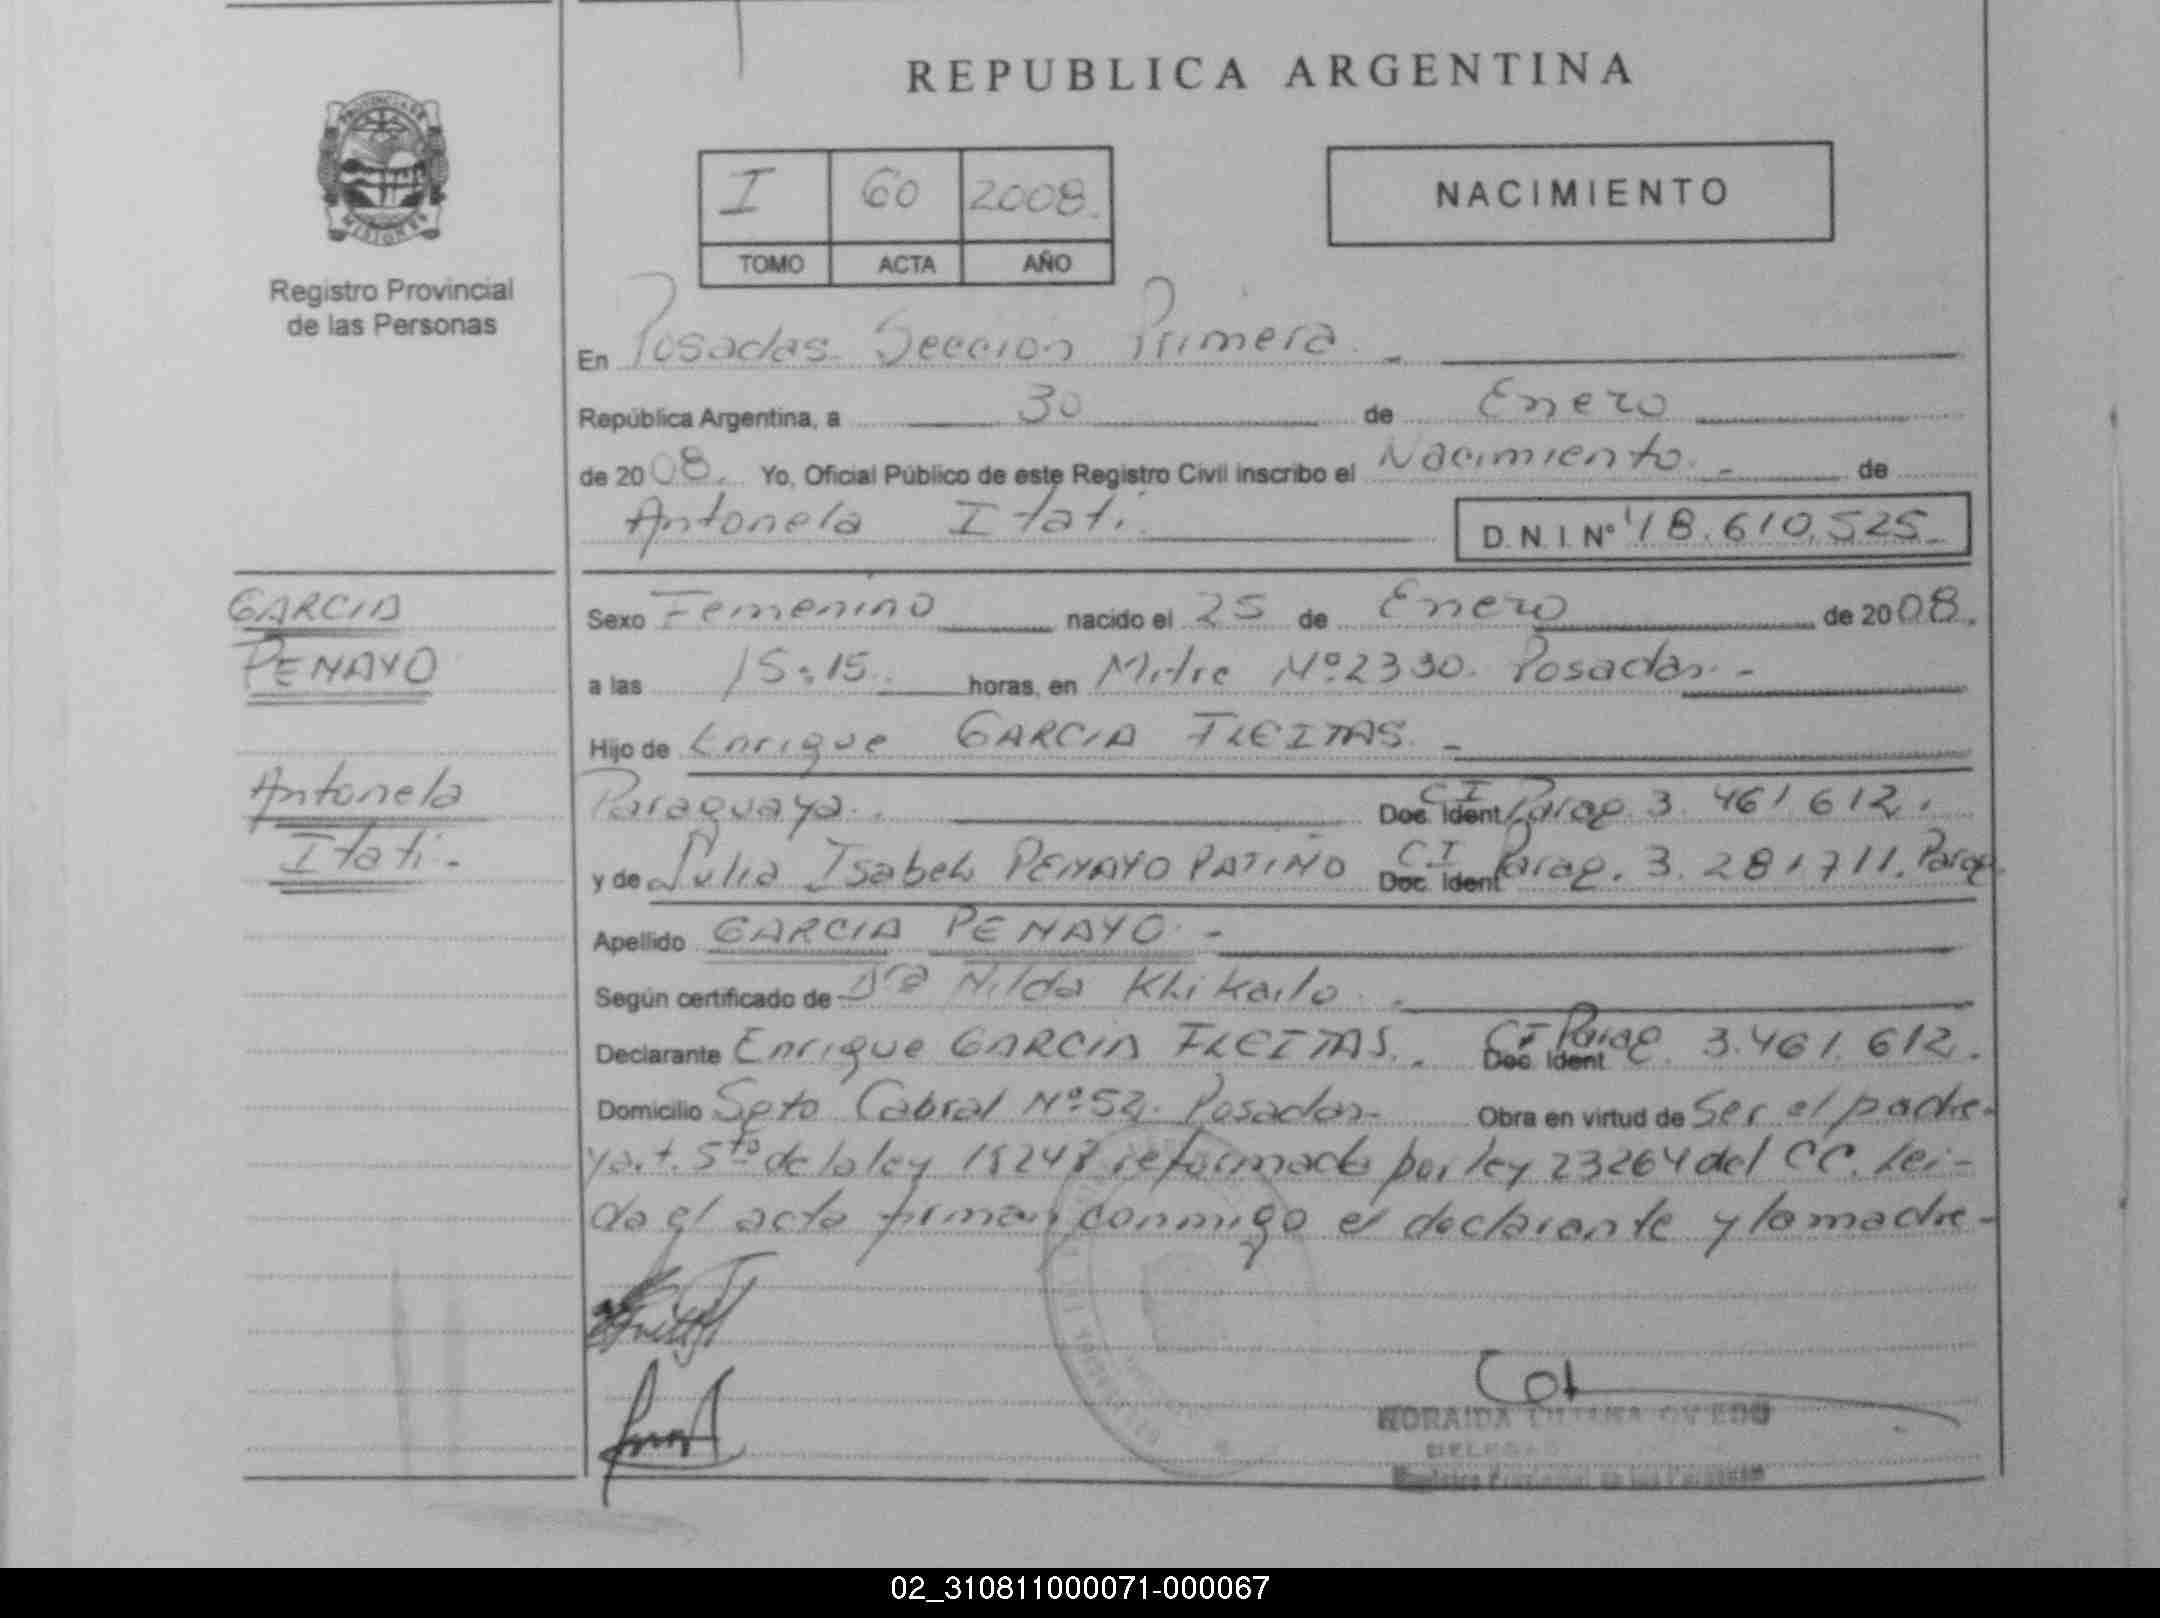 REPUBLICA ARGENTINA
PROVINCIA DE
MISIONES
Registro Provincial
de las Personas
I 60 2008.
TOMO ACTA AÑO
NACIMIENTO
En Posadas Seccion Primera. -
República Argentina, a 30 de Enero
de 2008. Yo, Oficial Público de este Registro Civil inscribo el Nacimiento. - de
Antonela Itati. D.N.I. Nº 48.610.525-
GARCIA
PENAYO
Antonela
Itati.-
Sexo Femenino nacido el 25 de Enero de 2008.
a las 15:15. horas, en Mitre Nº 2330. Posadas.-
Hijo de Enrique GARCIA FLEITAS. -
Paraguaya. CI Doc. Ident Parag. 3.461.612.
y de Julia Isabel PENAYO PATIÑO CI Doc. Ident Parag. 3.281.711. Parag.
Apellido GARCIA PENAYO. -
Según certificado de Dra Nilda Khikailo. -
Declarante Enrique GARCIA FLEITAS. - CI Parag Doc. Ident 3.461.612.
Domicilio Sgto Cabral Nº 52. Posadas- Obra en virtud de Ser el padre-
y art. 5to de la ley 18248 reformado por ley 23264 del CC. Lei-
da el acta firman conmigo el declarante y la madre-
NORAIDA LILIANA OVIEDO
Registro Provincial de las Personas
02_310811000071-000067